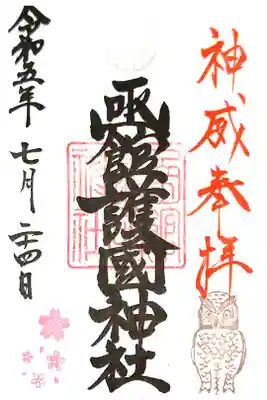 神威奉拝
函館護國神社
令和五年七月二十四日